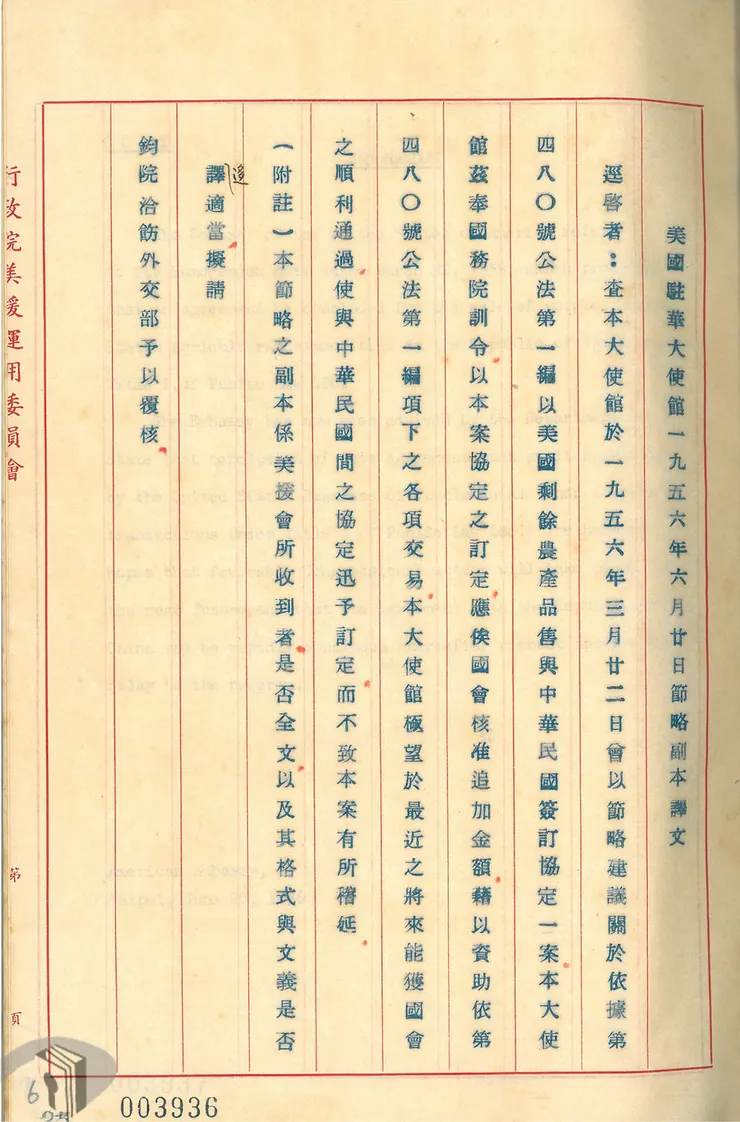 美國駐華大使館一九五六年六月廿日節略副本譯文
逕啓者：查本大使館於一九五六年三月廿二日會以節略建議關於依據第
四八〇號公法第一編以美國剩餘農產品售與中華民國簽訂協定一案本大使
館茲奉國務院訓令以本案協定之訂定應俟國會核准追加金額藉以資助依第
四八〇號公法第一編項下之各項交易本大使館極望於最近之將來能獲國會
之順利通過使與中華民國間之協定迅予訂定而不致本案有所稽延
（附註）本節略之副本係美援會所收到者是否全文以及其格式與文義是否
譯適當擬請
鈞院洽飭外交部予以覆核
行政院美援運用委員會
第 頁
6
003936